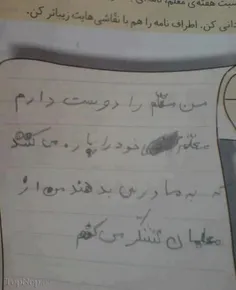 سبت هفته‌ی معلم، نامه‌ای
دانی کن. اطراف نامه را هم با نقّاشی‌هایت زیباتر کن.
من معلّم را دوست دارم
معلّم خود را پاره می کند
که به ما درس بدهند من از
معلمان تشکر می کنم